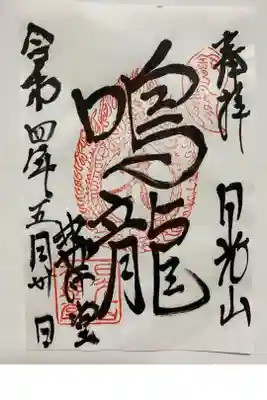 奉拝
日光山
鳴龍
薬師堂
令和四年五月卅日